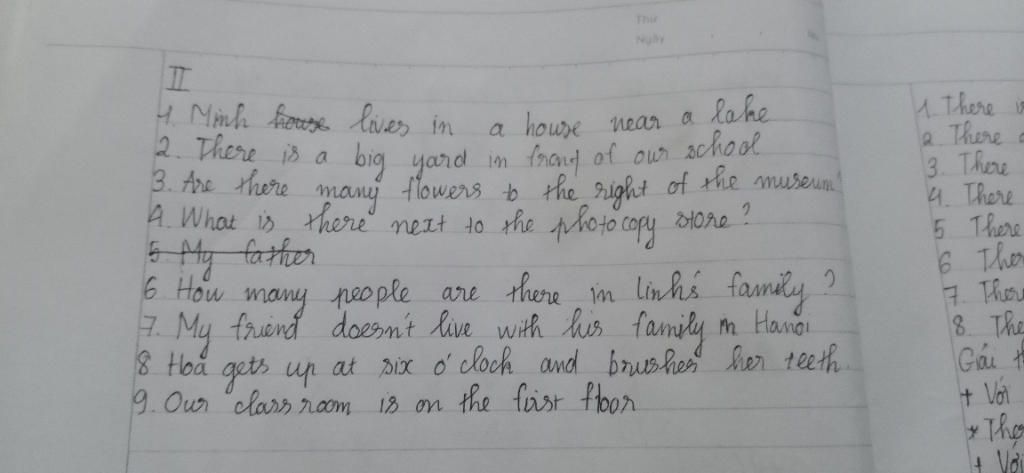 Thứ
Ngày
II
1. Minh house lives in a house near a lake
2. There is a big yard in front of our school
3. Are there many flowers to the right of the museum?
4. What is there next to the photocopy store?
5. My father
6 How many people are there in Linh's family?
7. My friend doesn't live with his family in Hanoi
8 Hoa gets up at six o'clock and brushes her teeth.
9. Our classroom is on the first floor
1. There
2. There
3. There
4. There
5 There
6
7.
8. The
Gái
+ Với
*
+